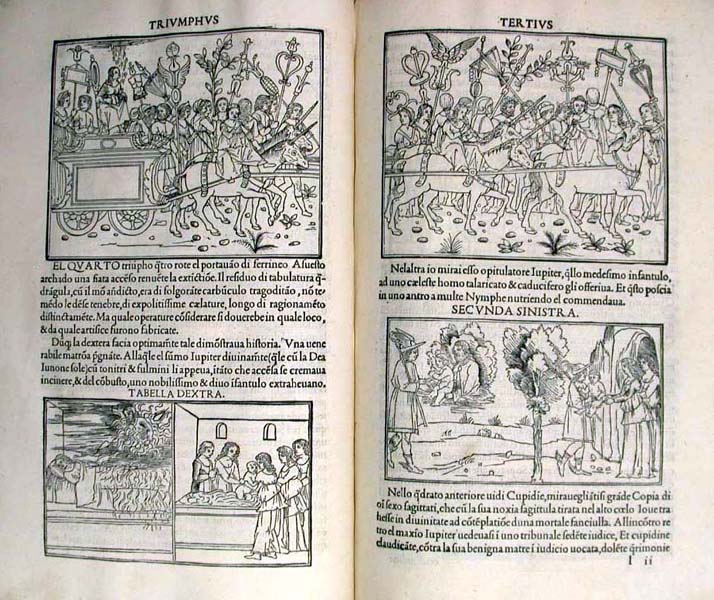 TRIVMPHVS
EL QVARTO triūpho q̄tro rote el portauão di ferrineo Asuesto
archado una fiata accēso renuēte la extictiōe. Il residuo di tabulatura q̄
drāgula, cū il mō ādicto, era di folgorāte carbūculo tragoditāo, nō te
mēdo le dēse tenebre, di expolitissime cælature, longo di ragionamēto
distinctamēte. Ma quale operature cōsiderare si douerebe in quale loco,
& da quale artifice furono fabricate.
Daq̄ la dextera facia optimamēte tale dimōstraua historia. Vna uene
rabile matrōa p̄gnāte. Allaq̄le el sūmo Iupiter diuinamēte (q̄le cū la Dea
Iunone sole) cū tonitri & fulmini li appeua, itāto che accēsa se cremaua
incinere, & del cōbusto, uno nobilissimo & diuo ifantulo extraheuano.
TABELLA DEXTRA.
TERTIVS
Nelaltra io mirai esso opitulatore Iupiter, q̄llo medesimo infantulo,
ad uno cæleste homo talaricato & caducifero gli offeriua. Et q̄sto poscia
in uno antro a multe Nymphe nutriendo el commendaua.
SECVNDA SINISTRA.
Nello q̄drato anteriore uidi Cupidie, mirauegliātisi grāde Copia di
oī sexo sagittati, che cū la sua noxia sagittula tirata nel alto cœlo Ioue tra
hesse in diuinitate ad cōtēplatiōe duna mortale fanciulla. Allincōtro re
tro el maxīo Iupiter uedeuasi ī uno tribunale sedēte iudice, Et cupidine
claudicāte, cōtra la sua benigna matre ī iudicio uocata, dolēte q̄rimonie
I ii